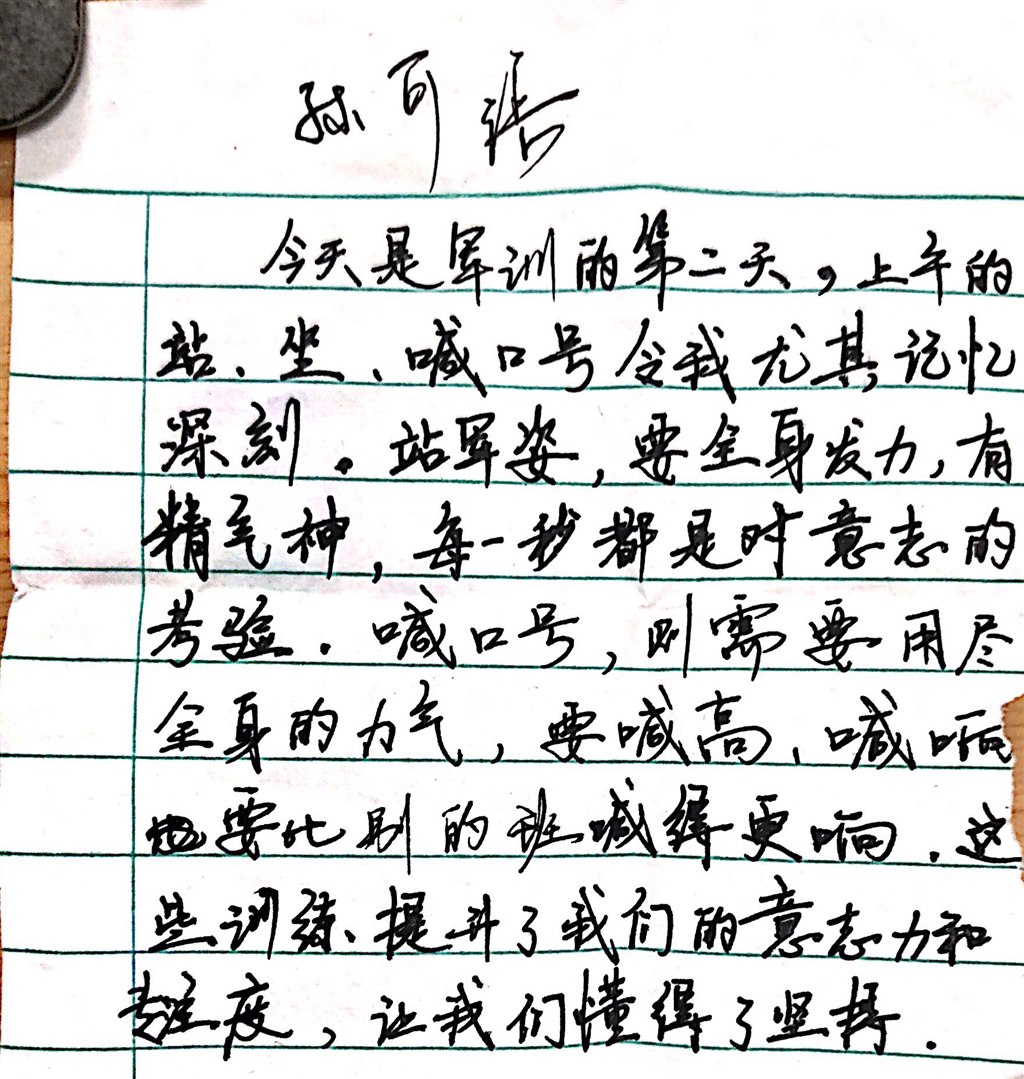 孙可
今天是军训的第二天，上午的
站、坐、喊口号令我尤其记忆
深刻。站军姿，要全身发力，有
精气神，每一秒都是对意志的
考验．喊口号，则需要用尽
全身的力气，要喊高、喊响
要比别的班喊得更响．这
些训练提升了我们的意志力和
专注度，让我们懂得了坚持．